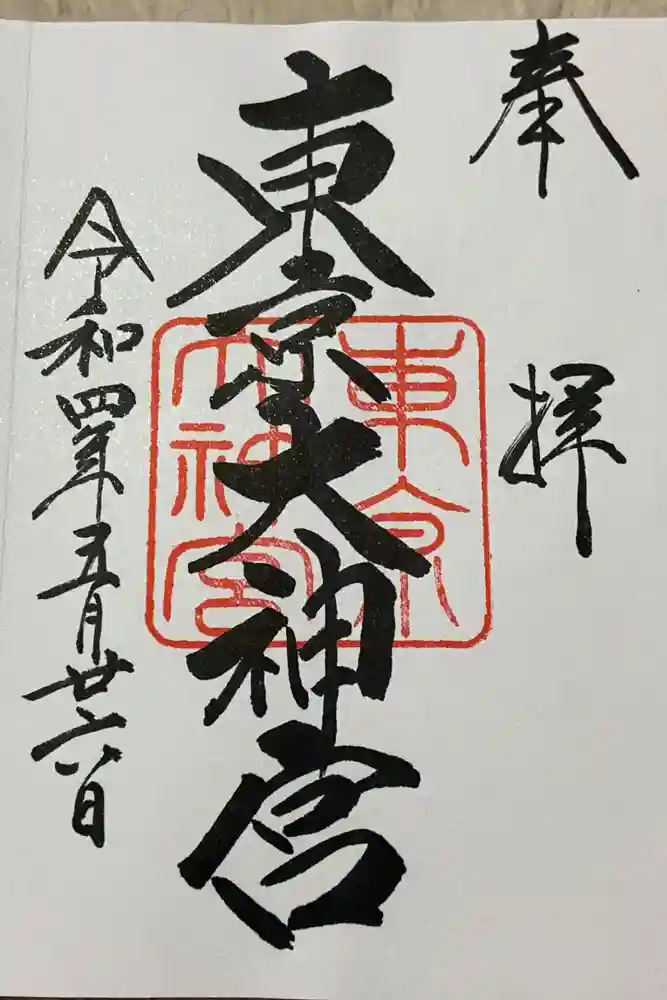 奉拝
東京大神宮
東京
大神宮
令和四年五月廿六日